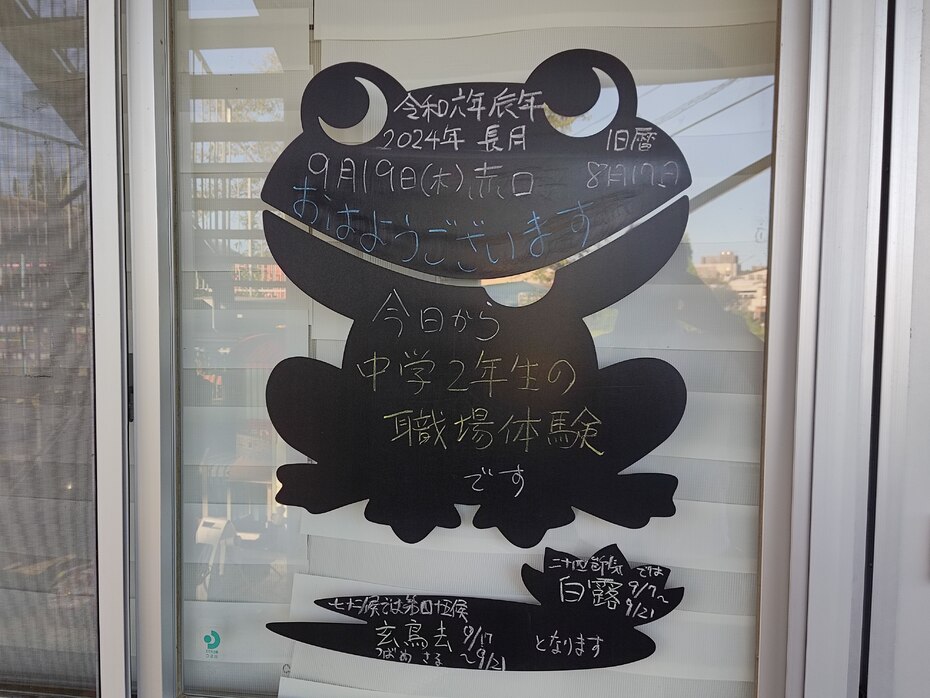 令和六年辰年
2024年 長月 旧暦
9月19日(木)赤口 8月17日
おはようございます
今日から
中学2年生の
職場体験
です
二十四節気では
白露 9/7~
9/21
七十二候では第四十五候
玄鳥去 9/17
つばめさる ~9/21
となります